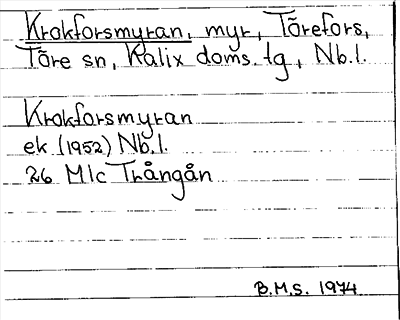 Krokforsmyran, myr, Törefors,
Töre sn, Kalix doms.tg, Nb.l.
Krokforsmyran
ek (1952) Nb.l.
26 Mlc Trångån
B.M.S. 1974